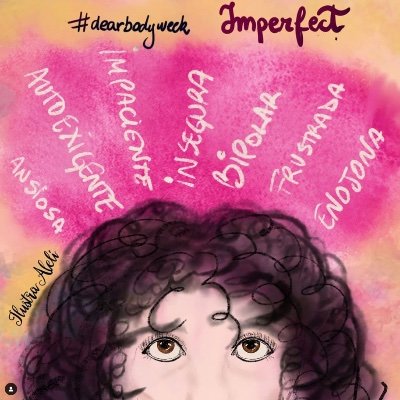 #dearbodyweek
Imperfect.
ANSIOSA
AUTOEXIGENTE
IMPACIENTE
INSEGURA
BIPOLAR
FRUSTRADA
ENOJONA
Ilustra Aleli